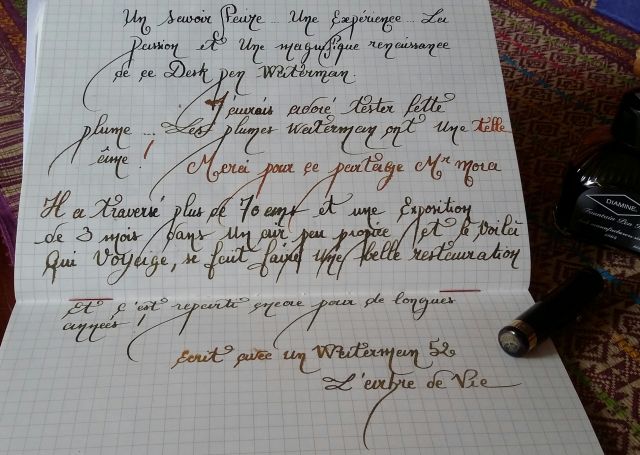 Un Savoir Faire... Une Expérience... La
passion et Une magnifique renaissance
de ce Desk pen Waterman.
J'aurais adoré tester cette
plume ... Les plumes Waterman ont Une telle
âme !
Merci pour ce partage Mr Mora
Il a traversé plus de 70 ans et une Exposition
de 3 mois dans Un air peu propre et le Voilà
Qui Voyage, se fait faire Une belle restauration
Et c'est reparti encore pour de longues
années
Ecrit avec un Waterman 52
L'arbre de Vie
DIAMINE
Fountain Pen